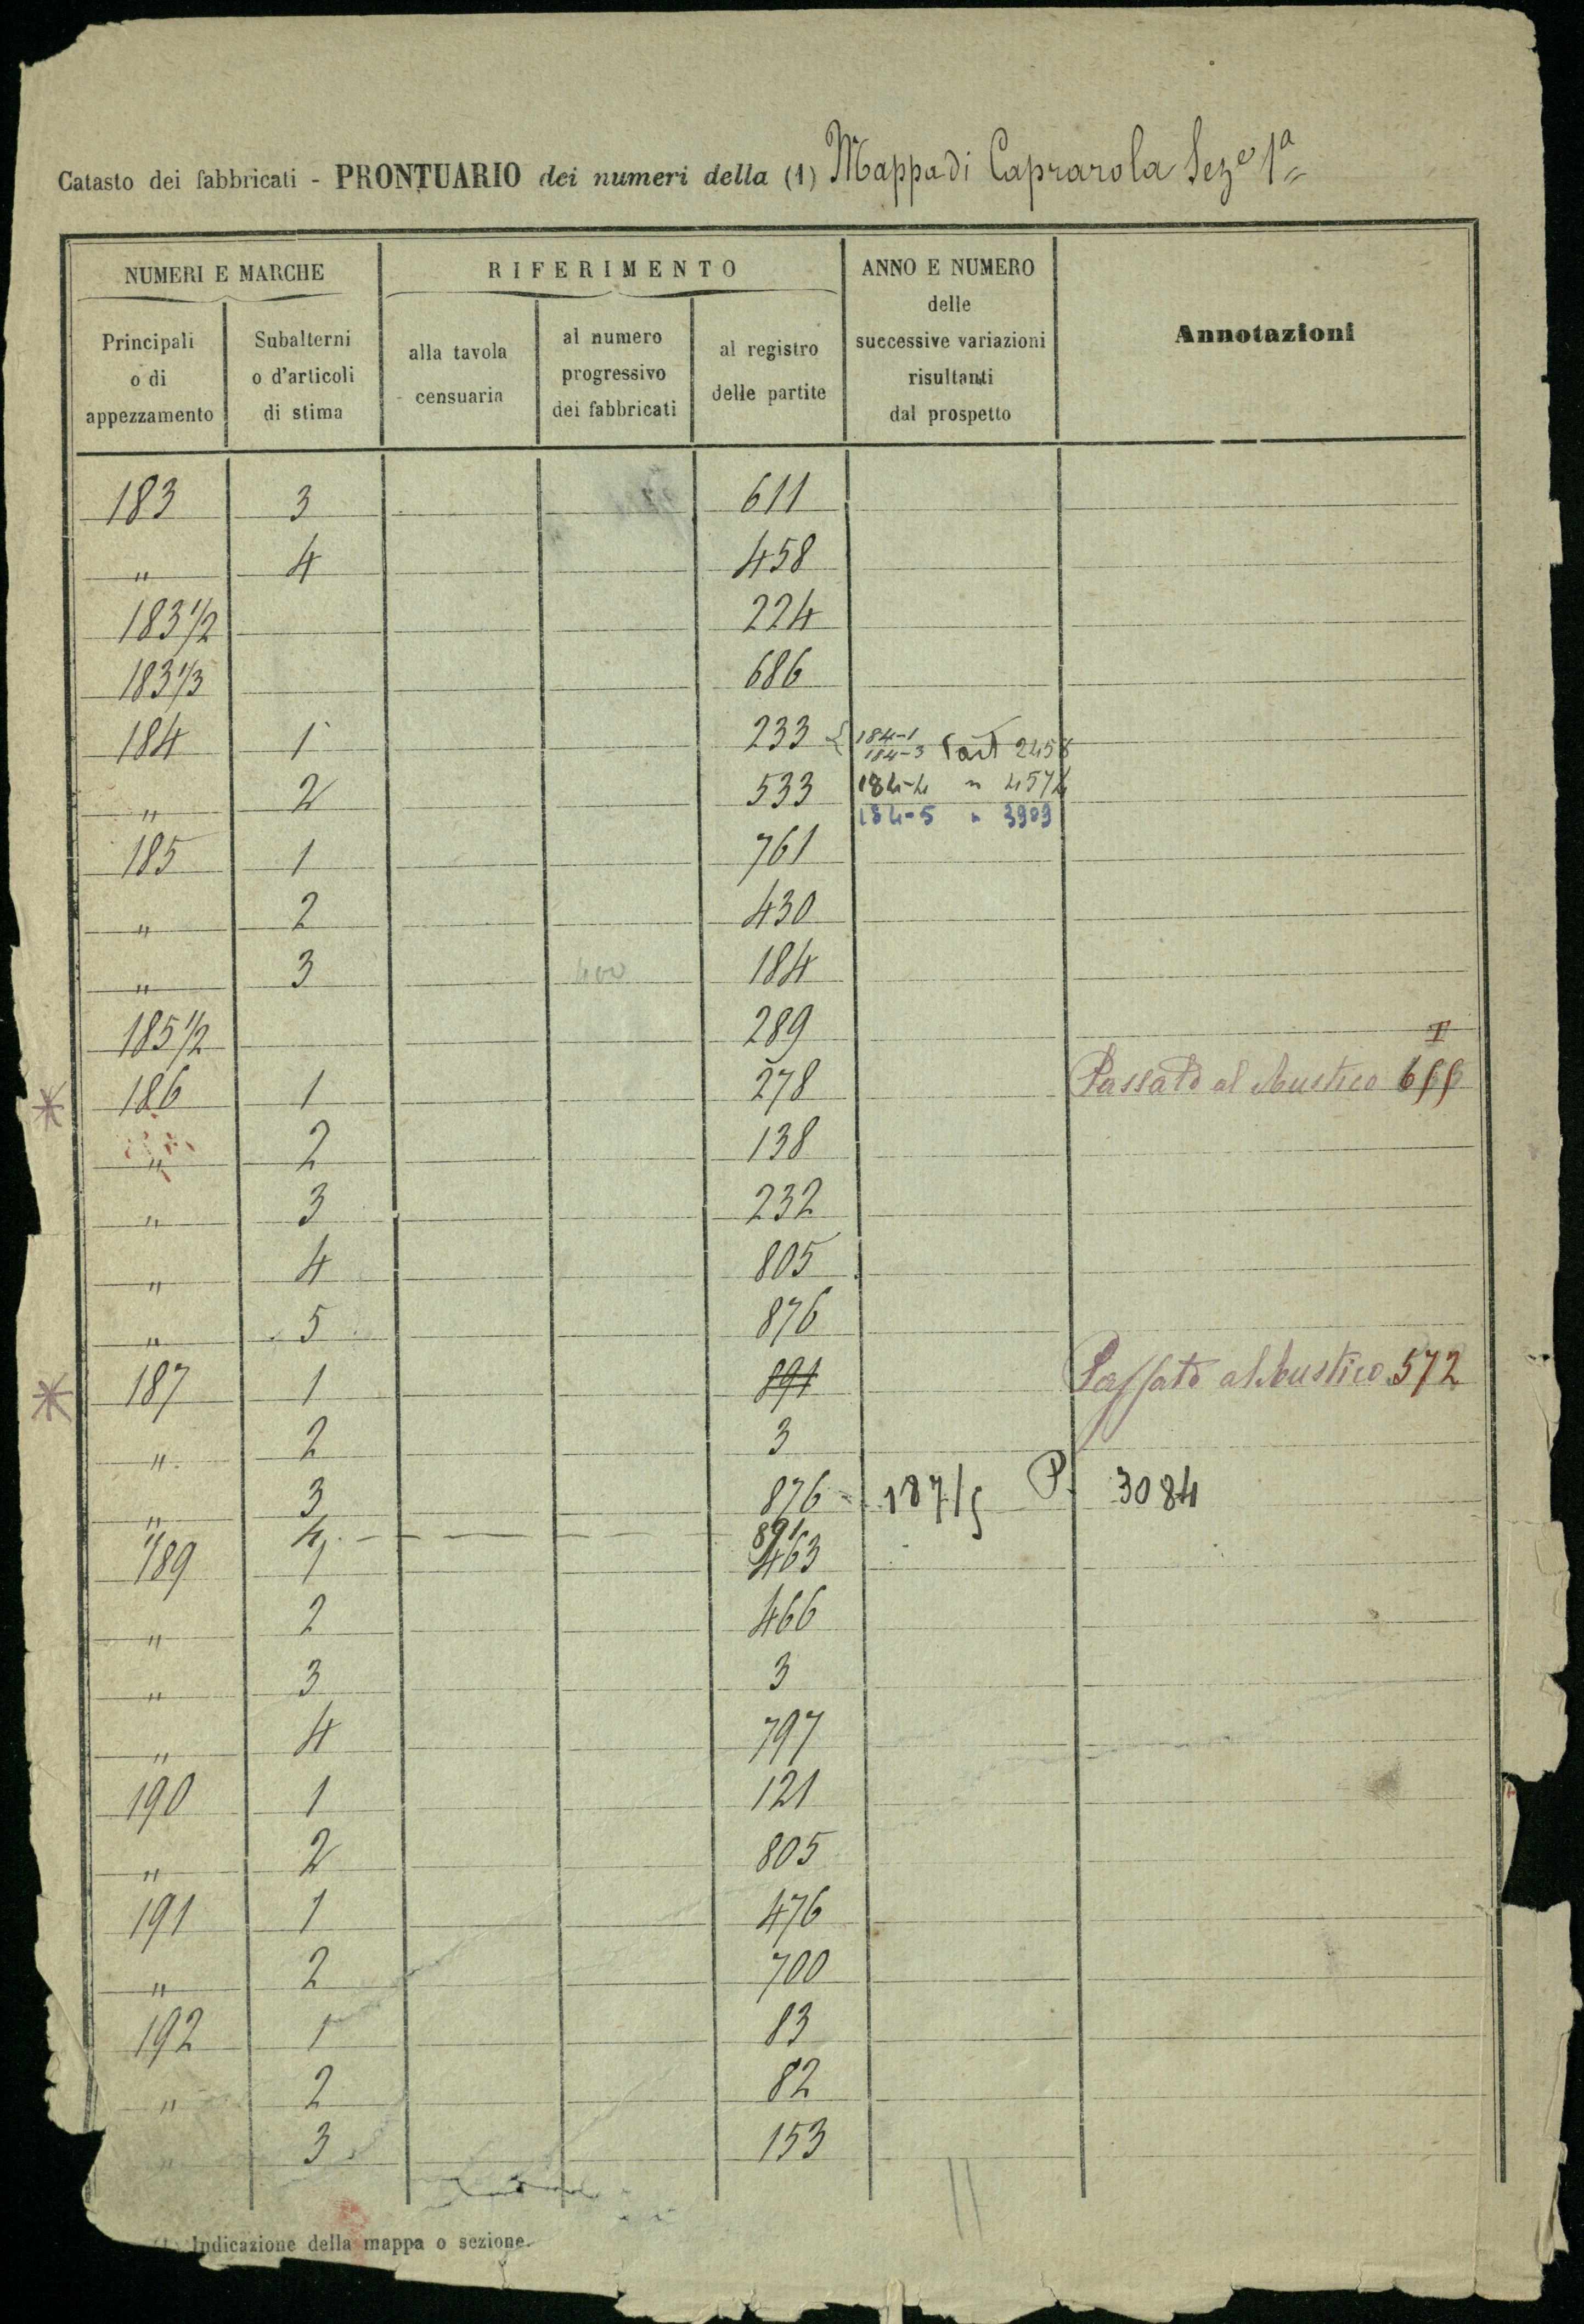 Catasto dei fabbricati - PRONTUARIO dei numeri della (1) Mappa di Caprarola Seze 1ª
NUMERI E MARCHE
RIFERIMENTO
ANNO E NUMERO
delle
successive variazioni
risultanti
dal prospetto
Annotazioni
Principali
o di
appezzamento
Subalterni
o d'articoli
di stima
alla tavola
censuaria
al numero
progressivo
dei fabbricati
al registro
delle partite
183 3 611
" 4 458
183 1/2 224
183 1/3 686
184 1 233 { 184-1
184-3 Part 2458
" 2 533 184-4 " 4574
184-5 " 3909
185 1 761
" 2 430
" 3 184
185 1/2 289
186 1 278 Passato al Rustico
" 2 138
" 3 232
" 4 805
" 5 876
187 1 891 Passato al Rustico 572
" 2 3
" 3 876 = 187/5 P. 3084
" 4 - - - - 891
189 1 463
" 2 466
" 3 3
" 4 797
190 1 121
" 2 805
191 1 476
" 2 700
192 1 83
" 2 82
" 3 153
(1) Indicazione della mappa o sezione.